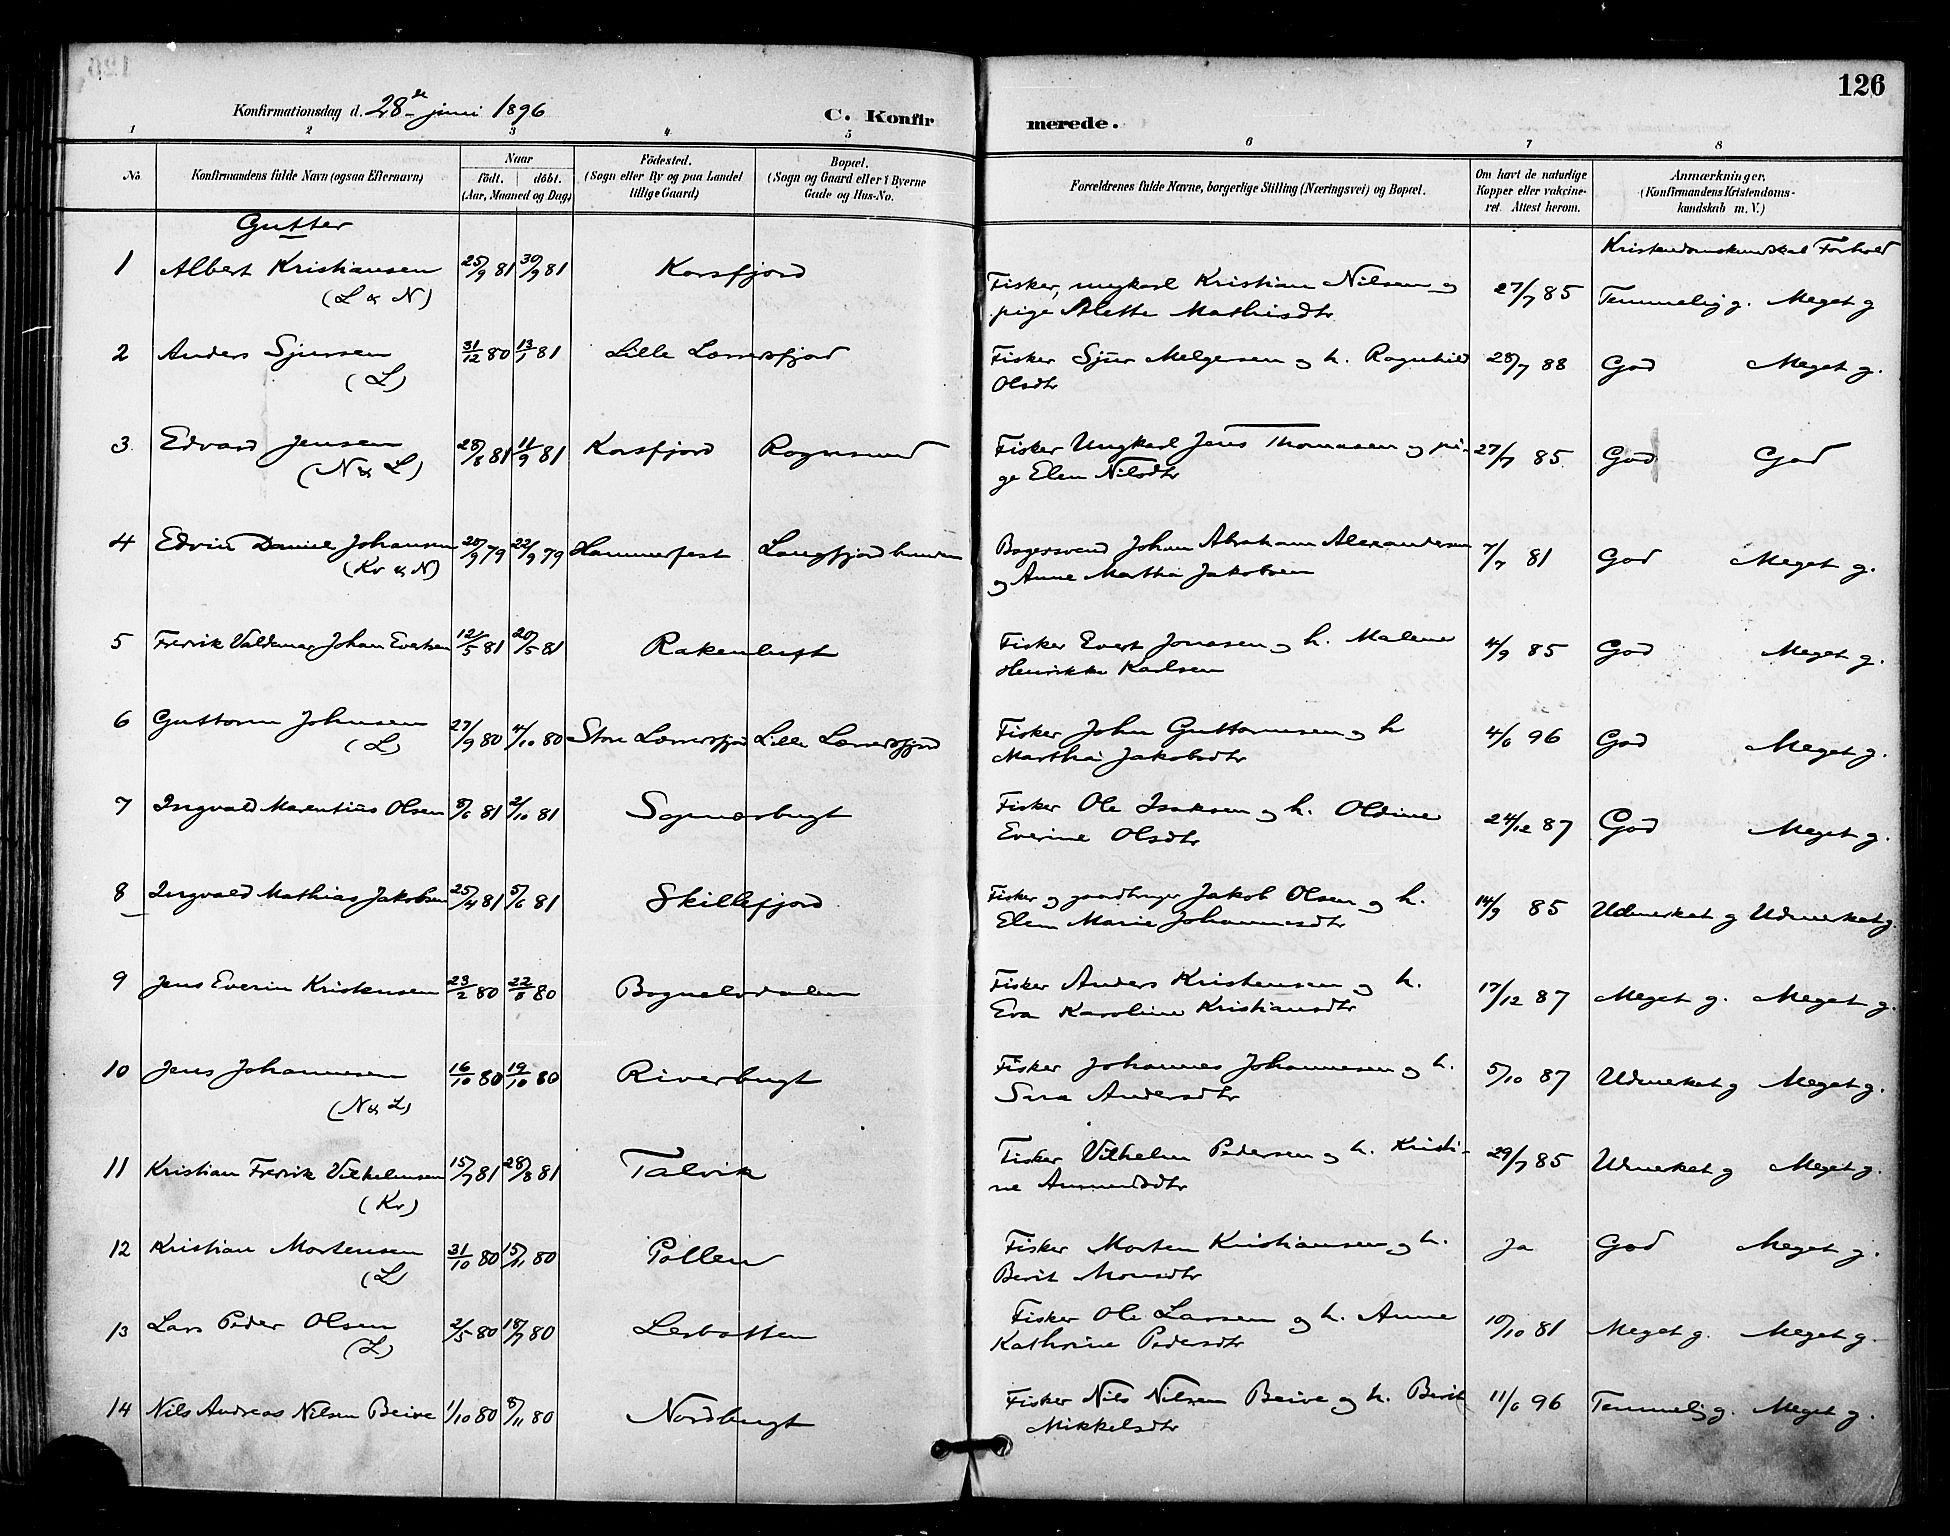 126
Konfirmationsdag d. 28de juni 1896
C. Konfirmerede.
1 2 3 4 5 6 7 8
No. Konfirmandens fulde Navn (ogsaa Efternavn) Naar født. døbt. (Aar, Maaned og Dag) Födested. (Sogn eller By og paa Landet tillige Gaard) Bopæl. (Sogn og Gaard eller i Byerne Gade og Hus-No. Forældrenes fulde Navne, borgerlige Stilling (Næringsvei) og Bopæl. Om havt de naturlige Kopper eller vakcineret. Attest herom. Anmærkninger, (Konfirmandens Kristendomskundskab m. V.)
Gutter
Kristendomskundskab Forhold
1 Albert Kristiansen 25/9 81 30/9 81 Korsfjord Fisker, ungkarl Kristian Nilsen og 27/7 85 Temmelig g. Meget g
(L & N) pige Alette Mathisdtr
2 Anders Sjursen 31/12 80 13/1 81 Lille Lerresfjord Fisker Sjur Melgersen og h. Ragnhild 28/7 88 God Meget g.
(L) Olsdtr
3 Edvard Jensen 28/8 81 11/9 81 Korsfjord Rognsund Fisker Ungkarl Jens Thomasen og pi- 27/7 85 God God
(N & L) ge Elen Nilsdtr
4 Edvin Daniel Johansen 20/9 79 22/9 79 Hammerfest Langfjordbunden Bagersvend Johan Abraham Alexandersen 7/7 81 God Meget g.
(Kv & N) og Anne Martha Jakobsen
5 Fredrik Valdemar Johan Evertsen 12/5 81 20/5 81 Rakenluft Fisker Evert Jonasen og h. Malene 4/9 85 God Meget g.
Henrikke Karlsen
6 Guttorm Johnsen 27/9 80 4/10 80 Store Lerresfjord Lille Lerresfjord Fisker John Guttormsen og h 4/6 96 God Meget g.
(L) Martha Jakobsdtr
7 Ingvald Marentius Olsen 5/6 81 2/10 81 Sopnesbugt Fisker Ole Isaksen og h. Oldine 24/12 87 God Meget g.
Everine Olsdtr
8 Ingvald Mathias Jakobsen 25/4 81 5/6 81 Skillefjord Fisker og gaardbruger Jakob Olsen og h. 14/9 85 Udmerket g Udmerket g.
Elen Marie Johannesdtr
9 Jens Everin Kristensen 23/2 80 22/8 80 Bognelvdalen Fisker Anders Kristensen og h. 17/12 87 Meget g. Meget g.
Eva Karoline Kristiansdtr
10 Jens Johannesen 16/10 80 19/10 80 Riverbugt Fisker Johannes Johannesen og h. 5/10 87 Udmerket g Meget g.
(N & L) Sara Andersdtr
11 Kristian Fredrik Vilhelmsen 15/7 81 28/8 81 Talvik Fisker Vilhelm Pedersen og h. Kristi- 29/7 85 Udmerket g Meget g.
(Kv) ne Amundsdtr
12 Kristian Mortensen 31/10 80 15/11 80 Pollen Fisker Morten Kristiansen og h. Ja God Meget g.
(L) Berit Monsdtr
13 Lars Peder Olsen 2/5 80 18/7 80 Lerbotten Fisker Ole Larsen og h. Anne 10/10 81 Meget g. Meget g.
(L) Kathrine Pedersdtr
14 Nils Andreas Nilsen Beive 1/10 80 8/11 80 Nordbugt Fisker Nils Nilsen Beive og h. Berit 11/6 96 Temmelig g. Meget g.
Mikkelsdtr